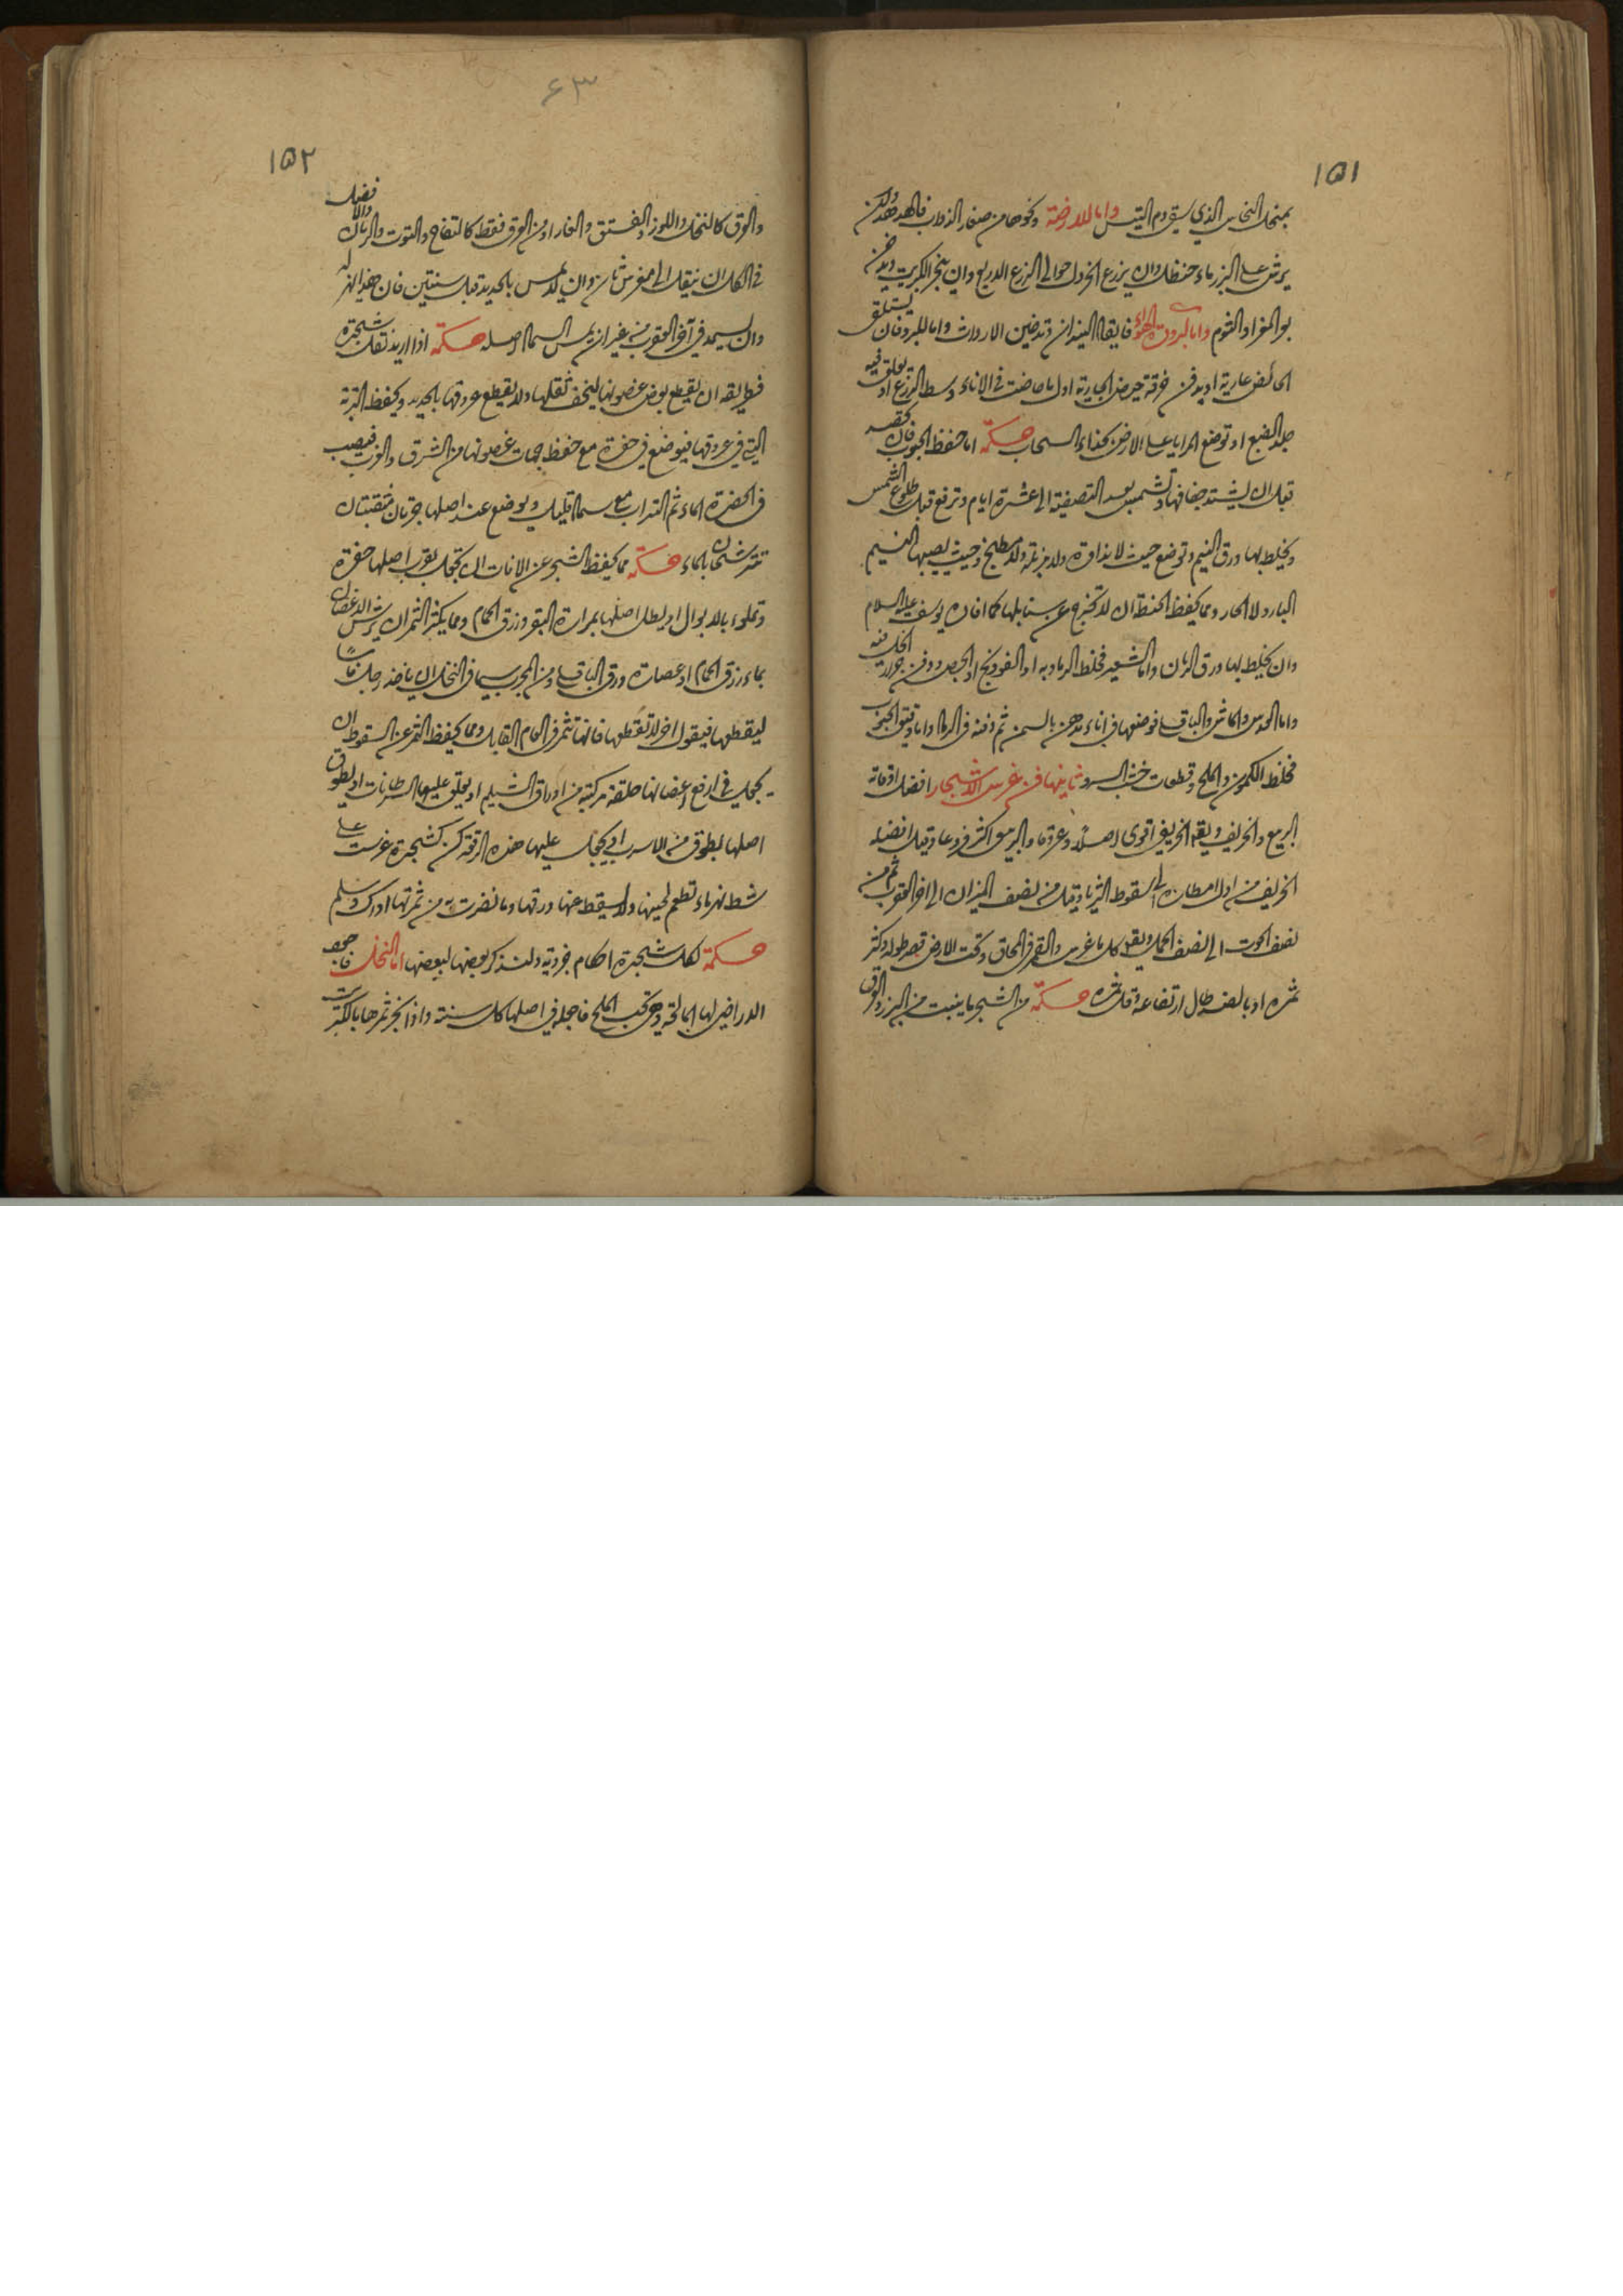 ١٥١
بمنجل النحاس الذي سقي دم التيس واما للارضة ونحوها من صغار الدواب فالهدهد وان
يرش على البزر ماء حنظل وان يزرع الخردل حوالى الزرع الدريع وان يبخر بالكبريت ويدخن
او الثوم واما لبرودة الهواء فايقاد النيران وتدخين الارواث واما للبرد فان يستلق
الحائض عارية او يدفن خرقة حيض الجارية اول ما حاضت في الاناء وسط الزرع او يعلق فيه
جلد الضبع او توضع المرايا على الارض بحذاء السحاب حكمة اما حفظ الحبوب فان تحصد
قبل ان يشتد جفافها وتشمس بعد التصفية الى عشرة ايام وترفع قبل طلوع الشمس
ويخلط بها ورق النيم وتوضع حيث لا نداوة ولا مزبلة ولا مطبخ وحيث يصيبها النسيم
البارد لا الحار ومما يحفظ الحنطة ان لا تخرج عن سنابلها كما افاده يوسف عليه السلام
وان يخلط بها ورق الرمان واما الشعير فخلط الرماد به او الفودنج او الجص ودفن جرار الخل فيه
واما العدس والماش والباقلى فوضعها في اناء مدهن بالسمن ثم دفنه في الرماد واما دقيق الخبز
فخلط الكمون والملح وقطعات خشب السرو ثانيها فن غرس الاشجار افضل اوقاته
الربيع والخريف ويقال الخريفي اقوى اصلا وعروقا والربيعي اكثر فروعا وقيل افضله
الخريف من اول امطاره الى سقوط الثريا وقيل من نصف الميزان الى اخر العقرب ثم من
نصف الحوت الى نصف الحمل ويقال كل ما غرس والقمر في المحاق وتحت الارض قصر طوله وكثر
ثمره او بالضد طال ارتفاعه وقل ثمره حكمة من الشجر ما ينبت من البزر والورق
٦٣
١٥٢
والورق كالنخل واللوز والفستق والغار او من الورق فقط كالتفاح والتوت والرمان والافضل
في الكل ان ينقل الى مغرس ثان وان لا يمس بالحديد قبل سنتين فان هذا له
وان يسمد في آخر العقرب من غير ان يمس السماد اصله حكمة اذا اريد نقل شجرة
فطريقه ان يقطع بعض غصونها ليخف ثقلها ولا يقطع عروقها بالحديد ويحفظ التربة
التي في عروقها فيوضع في حفرة مع حفظ جهات غصونها من الشرق والغرب فيصب
في الحفرة الماء ثم التراب مع سماد قليل ويوضع عند اصلها جرتان مثقبتان
تترشحان بالماء حكمة مما يحفظ الشجر عن الافات ان تجعل بقرب اصلها حفرة
وتملوء بالابوال او يطلى اصلها بمرارة البقر وزرق الحمام ومما يكثر الثمر ان يرش الاغصان
بماء زرق الحمام او عصارة ورق الباقلى ومن المجرب سيما في النخل ان ياخذ رجل فاسا
ليقطعها فيقول اخر لا تقطعها فانها تثمر في العام القابل ومما يحفظ الثمر عن السقوط ان
يجعل في ارفع اغصانها حلقة مركبة من اوراق الشيلم او يعلق عليها السرطانات او يطوق
اصلها بطوق من الاسرب او يجعل عليها هذه الرقعة كن كشجرة غرست على
شط نهر ماء تطعم لحينها ولا يسقط عنها ورقها وما نضرت به من ثمرتها ادرك وسلم
حكمة لكل شجرة احكام جزوية ولنذكر بعضها لبعضها اما النخل فاجود
الاراضي لها المالحة وهي تحب الملح فاجعله في اصلها كل سنة واذا بخر ثمرها بالكبريت